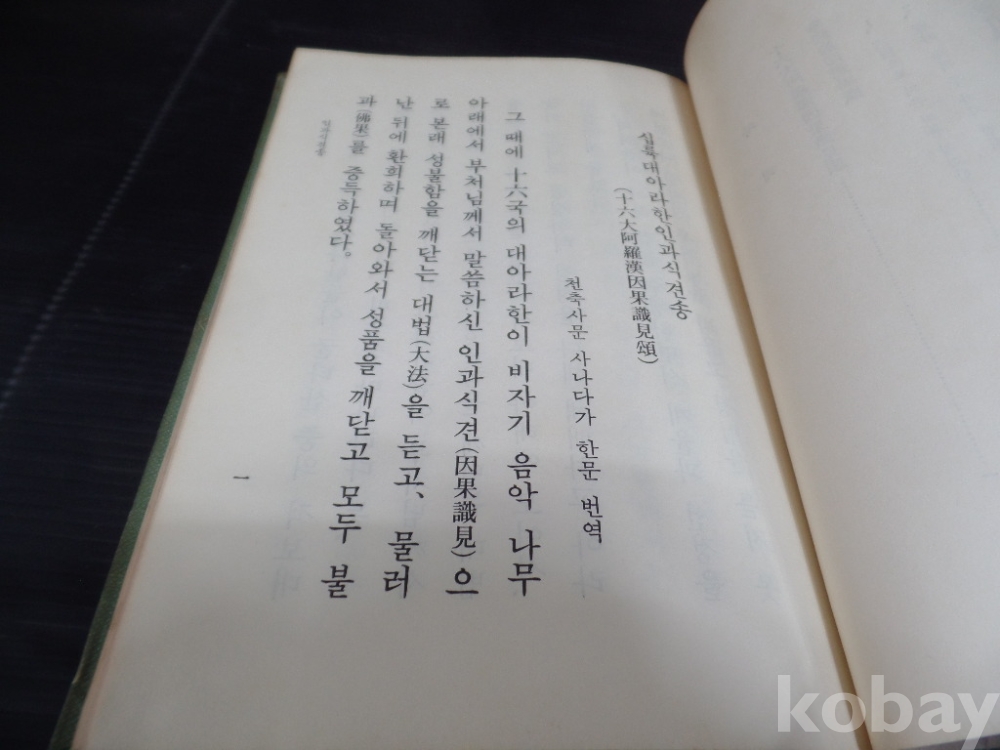 십륙대아라한인과식견송
(十六大阿羅漢因果識見頌)
천축사문 사나다가 한문 번역
그 때에 十六국의 대아라한이 비자기 음악 나무
아래에서 부처님께서 말씀하신 인과식견(因果識見)으
로 본래 성불함을 깨닫는 대법(大法)을 듣고、물러
난 뒤에 환희하며 돌아와서 성품을 깨닫고 모두 불
과(佛果)를 증득하였다。
一
kobay